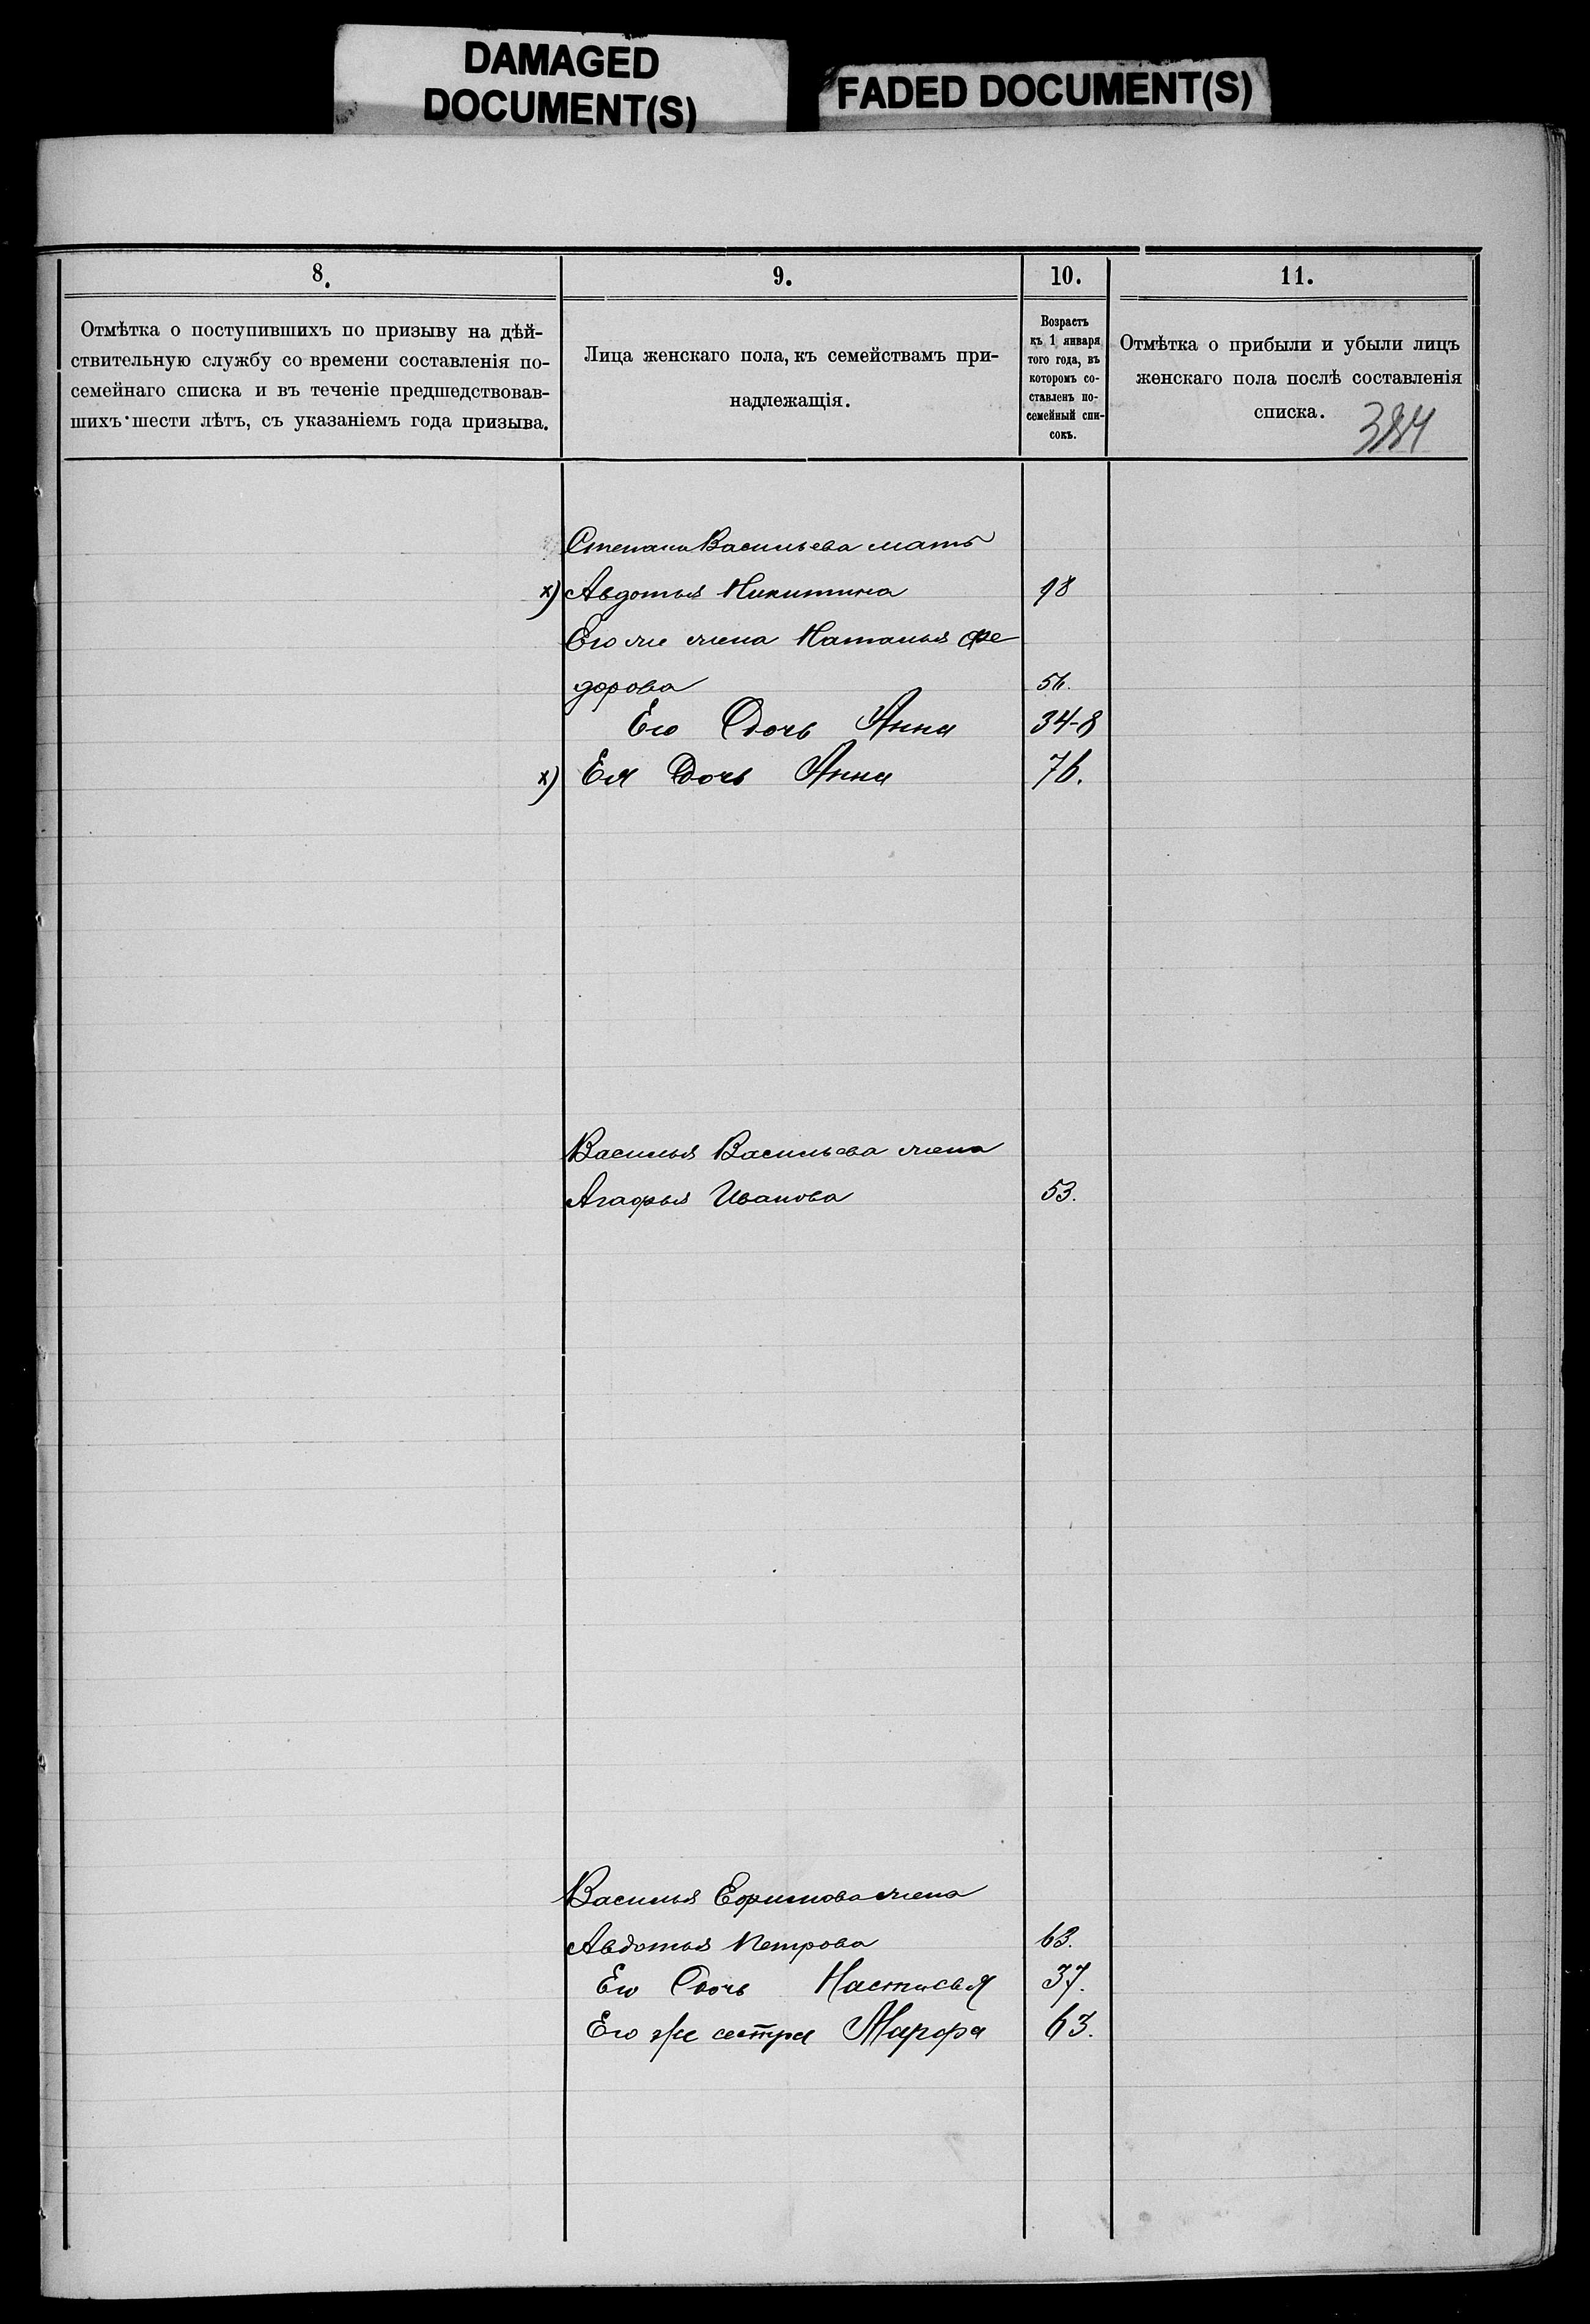 DAMAGED
DOCUMENT(S)
FADED DOCUMENT(S)
8.
Отмѣтка о поступившихъ по призыву на дѣй-
ствительную службу со времени составленія по-
семейнаго списка и въ теченіе предшедствовав-
шихъ шести лѣтъ, съ указаніемъ года призыва.
9.
Лица женскаго пола, къ семействамъ при-
надлежащія.
10.
Возрастъ
къ 1 января
того года, въ
которомъ со-
ставленъ по-
семейный спи-
сокъ.
11.
Отмѣтка о прибыли и убыли лицъ
женскаго пола послѣ составленія
списка.
384
Степана Васильева мать
х) Авдотья Никитина 98
Его же жена Наталья Фе
дорова 56.
Его Дочь Анна 34-8
х) Ея Дочь Анна 76.
Василья Васильева жена
Агафья Иванова 53.
Василья Ефимова жена
Авдотья Петрова 63.
Его Дочь Настасья 37.
Его же сестра Марфа 63.